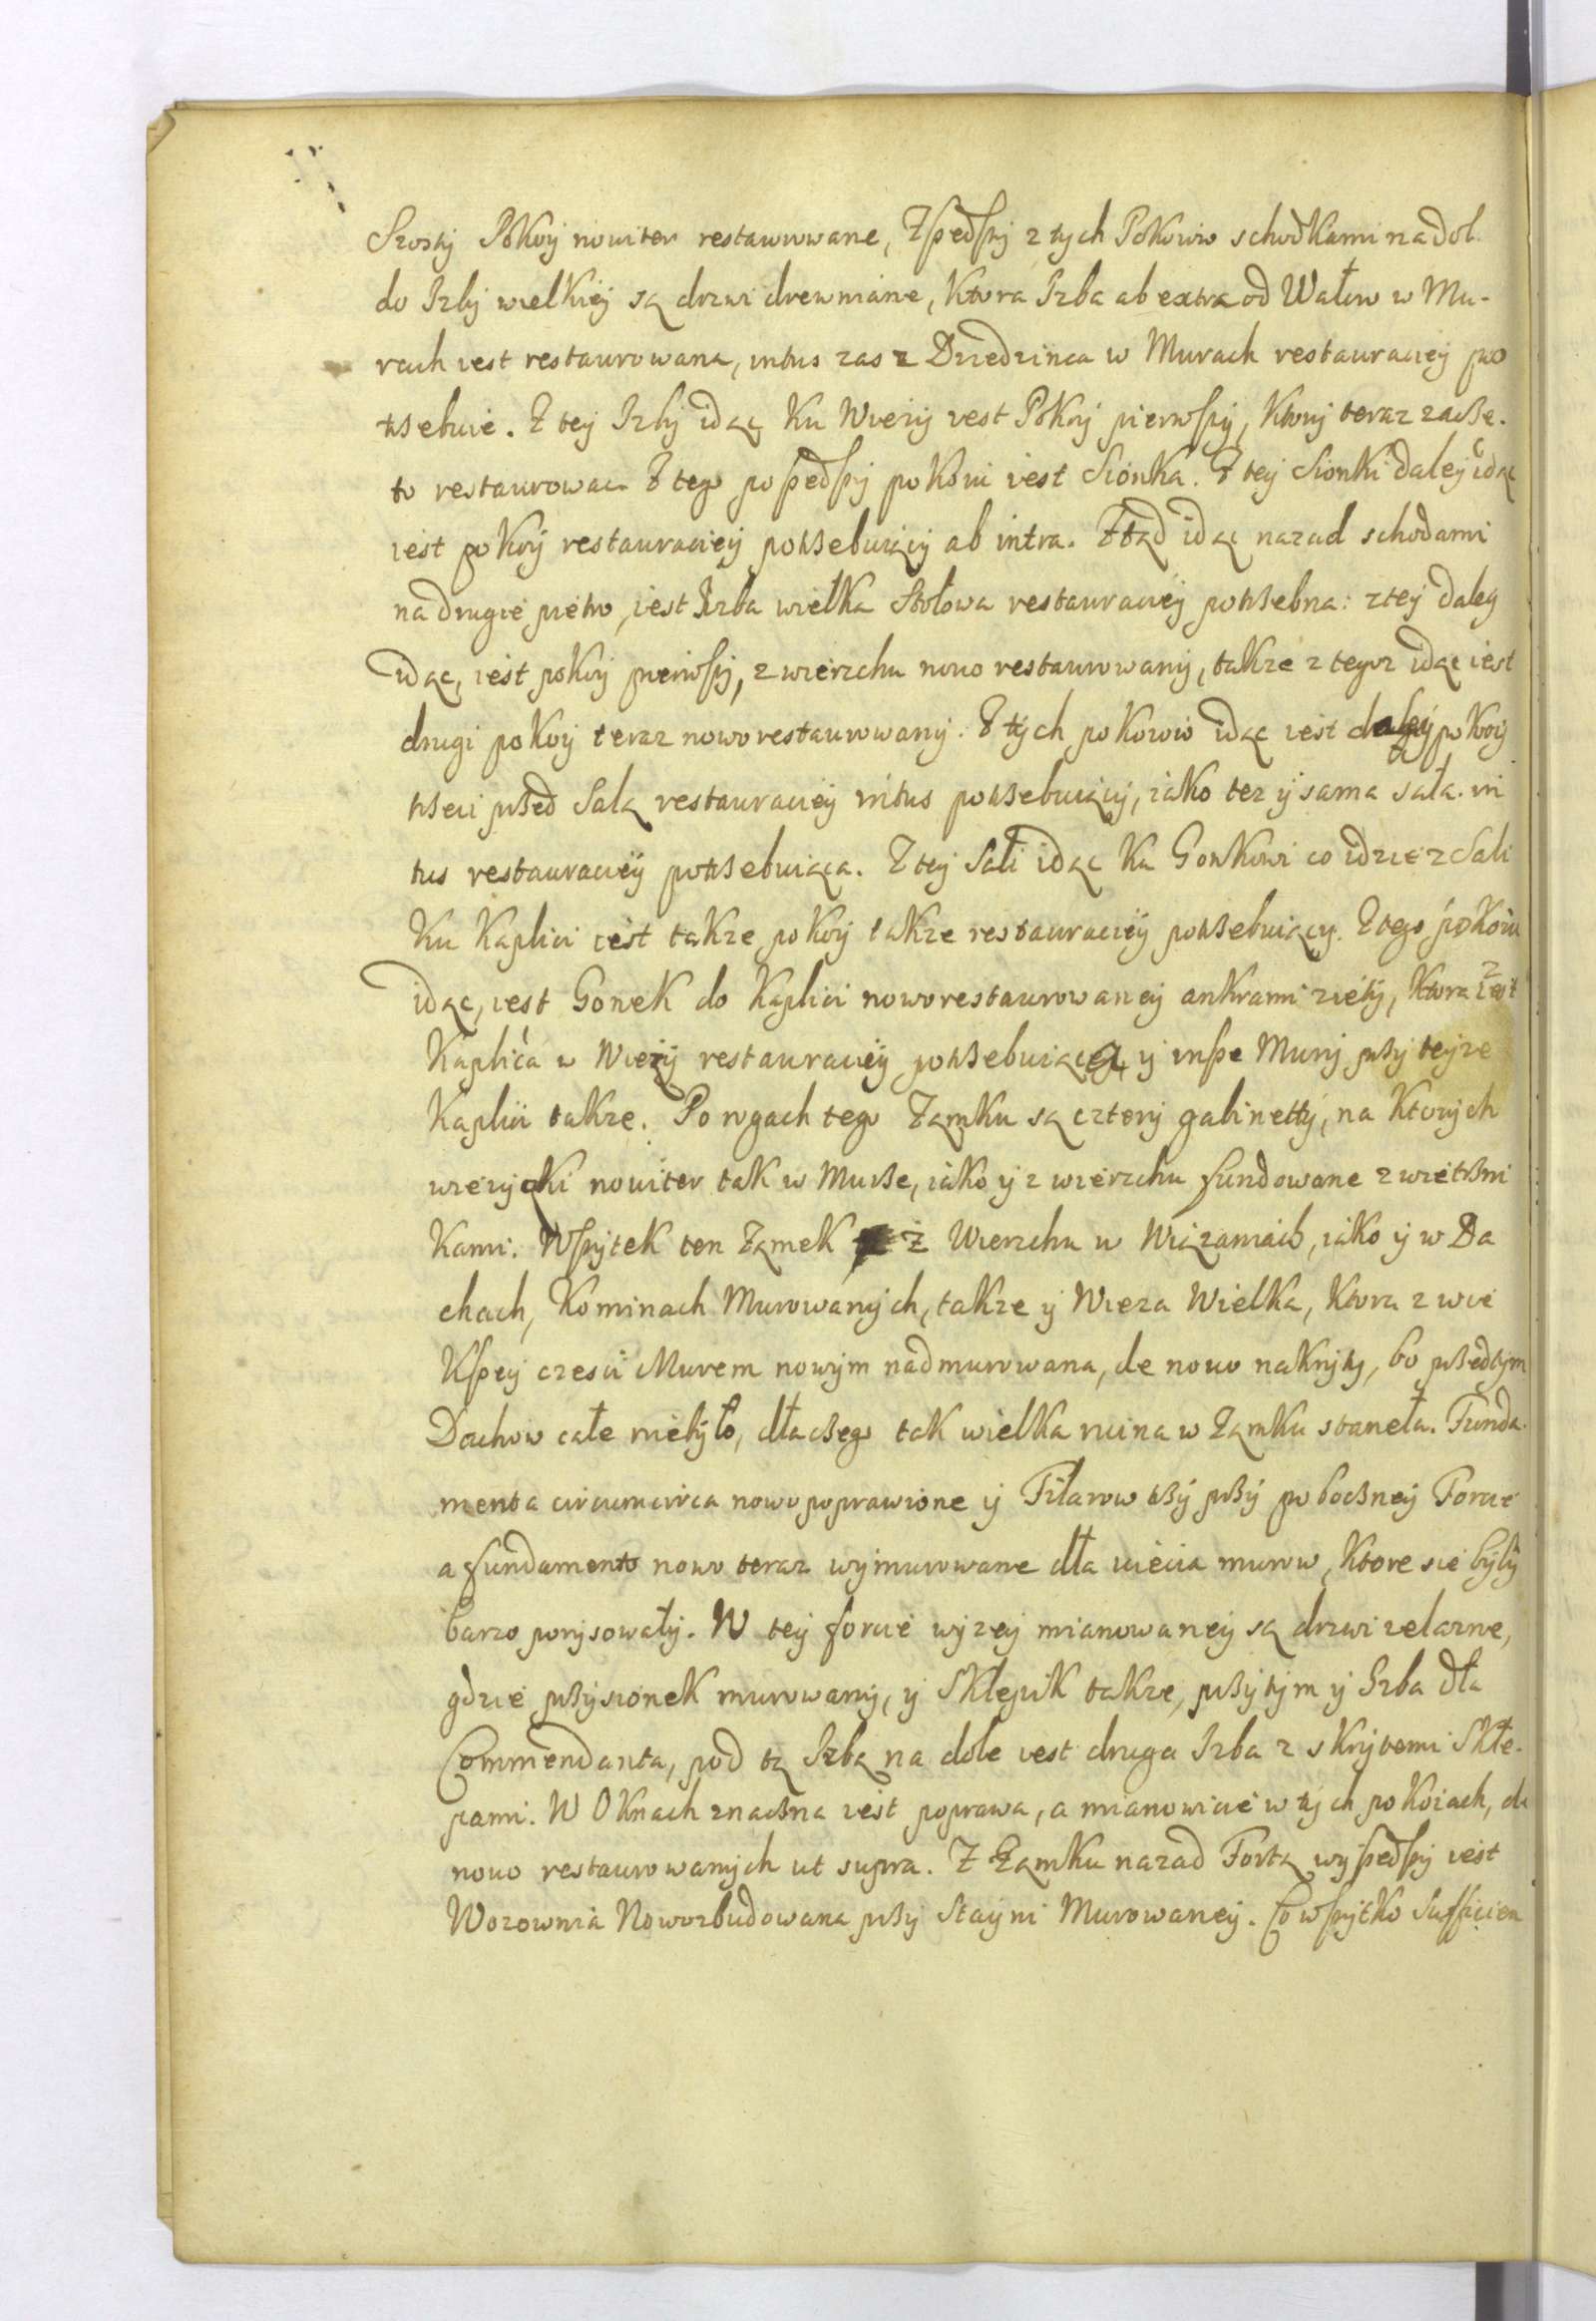 Szosty Pokoy nouiter restaurowane, Zszedszy z tych Pokoiow schodkami na dol
do Izby wielkiey są drzwi drewniane, Ktora Izba ab extra od Wałow w Mu-
rach iest restaurowana, intus zas z Dziedzinca w Murach restauraciey po
trzebuie. Z tey Izby idąc Ku Wiezy iest Pokoy pierwszy, Ktory teraz zacze-
to restaurowac Z tego poszedszy pokoiu iest Sionka. Z tey Sionki daley idąc
iest pokoy restauraciey potrzebuiący ab intra. Ztąd idąc nazad schodami
na drugie pietro, iest Izba wielka Stołowa restauraciey potrzebna: z tey daley
idąc, iest pokoy pierwszy, z wierzchu nouo restaurowany, takze z tegoz idąc iest
drugi pokoy teraz nowo restaurowany. Z tych pokoiow idąc iest daley pokoy
trzeci przed Salą restauraciey intus potrzebuiący, iako tez y sama sala in
tus restauraciey potrzebuiąca. Z tey Sali idąc Ku Gonkowi co idzie z Sali
Ku Kaplici iest takze pokoy takze restauraciey potrzebuiący. Z tego pokoiu
idąc, iest Gonek do Kaplici noworestaurowaney ankrami ziety, Ktora iest
Kaplica w Wiezy restauraciey potrzebuiącą y insze Mury przy teyze
Kaplici takze. Po rogach tego Zamku są cztery gabinetty, na Ktorych
wiezyczki nouiter tak w Murze, iako y z wierzchu fundowane z wietrzni
Kami. Wszytek ten Zamek z Wierzchu w Wiązaniach, iako y w Da
chach, Kominach Murowanych, takze y Wieza Wielka, Ktora z wie
Kszey czesci Murem nowym nadmurowana, de nouo nakryty, bo przedtym
Dachow całe niebyło, dla czego tak wielka ruina w Zamku staneła. Funda-
menta circumcirca nowo poprawione y Filarow trzy przy pobocznej Forcie
a fundamento nowo teraz wymurowane dla uiecia murow, Ktore sie były
barzo porysowały. W tey forcie wyzey mianowaney są drzwi zelazne,
gdzie przysionek murowany, y Sklepik takze, przytym y Izba dla
Commendanta, pod tą Izbą na dole iest druga Izba z skrytemi Skle-
pami. W Oknach znaczna iest poprawa, a mianowicie w tych pokoiach, de
nouo restaurowanych ut supra. Z Zamku nazad Fortą wyszedszy iest
Wozownia Nowozbudowana przy Stayni Murowaney. Co wszytko Sufficien